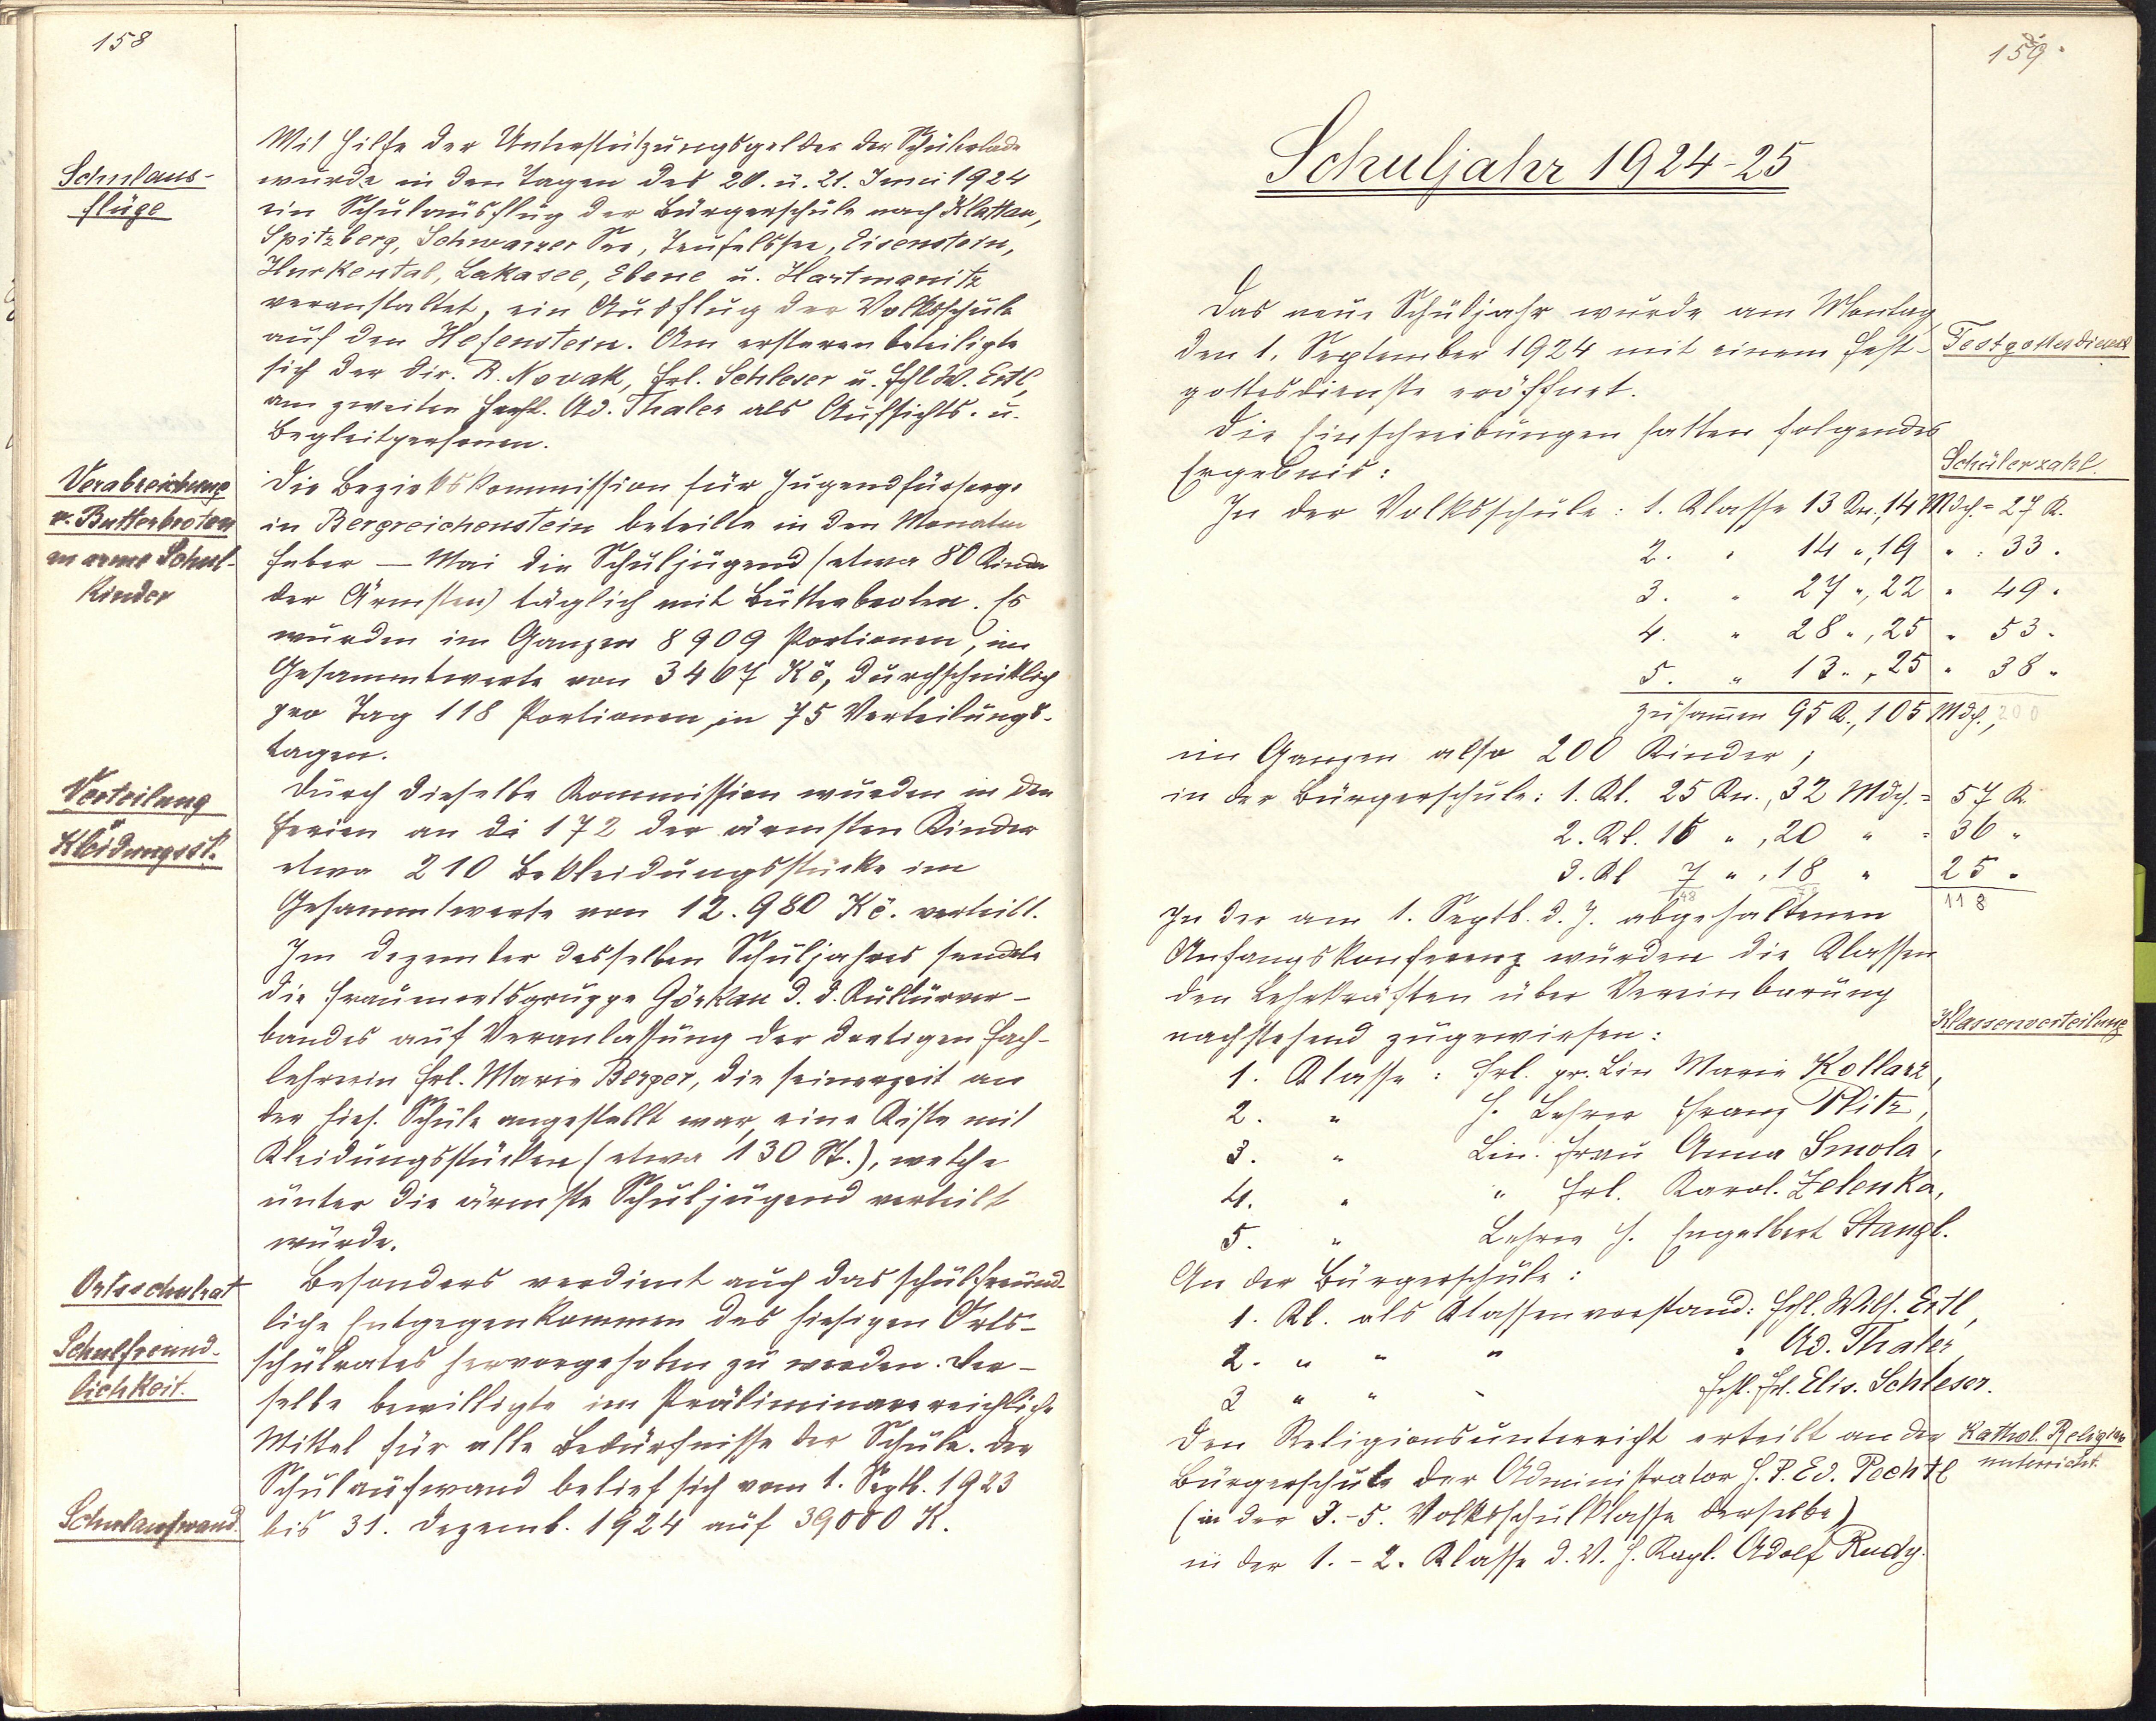 158
Schulaus-
flüge
Mit Hilfe der Unterstützungsgelder der Schülerlade
wurde in den Tagen des 20. u. 21. Juni 1924
ein Schulausflug der Bürgerschule nach Klattau,
Spitzberg, Schwarzer See, Teufelssee, Eisenstein,
Hurkental, Lakasee, Ebene u. Hartmanitz
veranstaltet, ein Ausflug der Volksschule
auf den Hefenstein. Am ersteren beteiligte
sich der Dir. R. Novak, Frl. Schleser u. Fchl W. Ertl,
am zweiten Fachl. Ad. Thaler als Aufsichts- u.
Begleitpersonen.
Verabreichung
v. Butterbroten
an arme Schul-
Kinder
Die Bezirkskommission für Jugendfürsorge
in Bergreichenstein beteilte in den Monaten
Feber — Mai die Schuljugend (etwa 80 Kinder
der Ärmsten) täglich mit Butterbroten. Es
wurden im Ganzen 8909 Portionen, im
Gesammtwerte von 3467 Kč, durchschnittlich
pro Tag 118 Portionen, in 75 Verteilungs-
tagen.
Verteilung
v. Kleidungsst.
Durch dieselbe Kommission wurden in den
Ferien an di 172 der ärmsten Kinder
etwa 210 Bekleidungsstücke im
Gesammtwerte von 12.980 Kč. verteilt.
Im Dezember desselben Schuljahres sendete
die Frauenortsgruppe Görkau d. d. Kulturver-
bandes auf Veranlassung der dortigen Fach-
lehrerin Frl. Marie Berger, die seinerzeit an
der hies. Schule angestellt war, eine Kiste mit
Kleidungsstücken (etwa 130 St.), welche
unter die ärmste Schuljugend verteilt
wurde.
Ortsschulrat
Schulfreund-
lichkeit.
Besonders verdient auch das schulfreund-
liche Entgegenkommen des hiesigen Orts-
schulrates hervorgehoben zu werden. Der-
selbe bewilligte im Präliminare reichliche
Mittel für alle Bedürfnisse der Schule. Der
Schulaufwand belief sich vom 1. Septb. 1923
Schulaufwand.
bis 31. Dezemb. 1924 auf 39000 K.
159.
Schuljahr 1924-25
Das neue Schuljahr wurde am Montag
den 1. September 1924 mit einem Fest-
Festgottesdienst
gottesdienste eröffnet.
Die Einschreibungen hatten folgendes
Ergebnis:
Schülerzahl.
In der Volksschule: 1. Klasse 13 Kn., 14 Mdch. = 27 K.
2. " 14 ", 19 " : 33.
3. " 27 ", 22 " 49 "
4. " 28 ", 25 " 53 "
5. " 13 ", 25 " 38 "
zusammen 95 K., 105 Mdch., 200
im Ganzen also 200 Kinder;
in der Bürgerschule: 1. Kl. 25 Kn., 32 Mdch. = 57 K.
2. Kl. 16 ", 20 " = 36 "
3. Kl 7 ", 18 " 25 "
48 118
In der am 1. Septb. d. J. abgehaltenen
Anfangskonferenz wurden die Klassen
den Lehrkräften über Vereinbarung
nachstehend zugewiesen:
Klassenverteilung
1. Klasse: Frl. pr. Lin Marie Kollarz,
2. " H. Lehrer Franz Plitz,
3. " Lin. Frau Anna Smola,
4. " " Frl. Karol. Zelenka,
5. " Lehrer H. Engelbert Stangl.
An der Bürgerschule:
1. Kl. als Klassenvorstand: Fchl. Wilh. Ertl,
2. " " " " Ad. Thaler
3 " " " Fchl. Frl. Elis. Schleser.
Den Religionsunterricht erteilt an der
Kathol. Religions
unterricht.
Bürgerschule der Administrator H. P. Ed. Pechtl
(in der 3.-5. Volksschulklasse derselbe)
in der 1.-2. Klasse d. W. H. Kapl. Adolf Rudy.